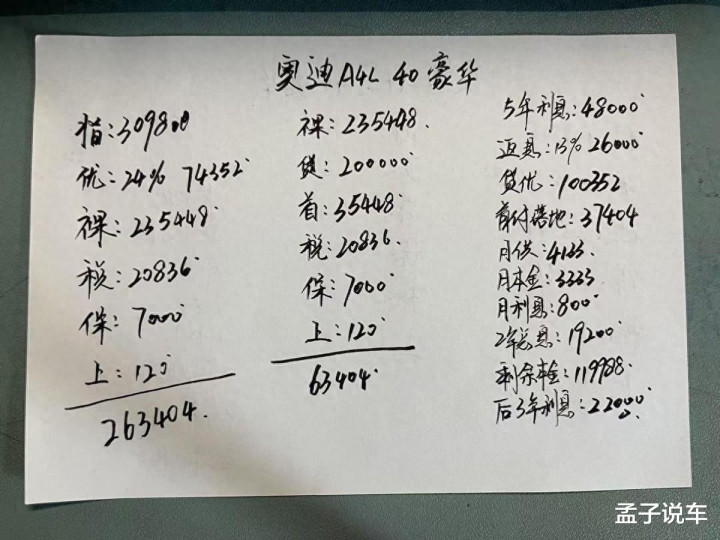 奥迪A4L 40豪华
指:309800
优:24% 74352
裸:235448
税:20836
保:7000
上:120
263404.
裸:235448.
贷:200000
首:35448
税:20836.
保:7000
上:120
63404.
5年利息:48000
返息:13% 26000
贷优:100352
首付落地:37404
月供:4133
月本金:3333
月利息:800
2年总息:19200
剩余本金:119988
后3年利息:22000
孟子说车